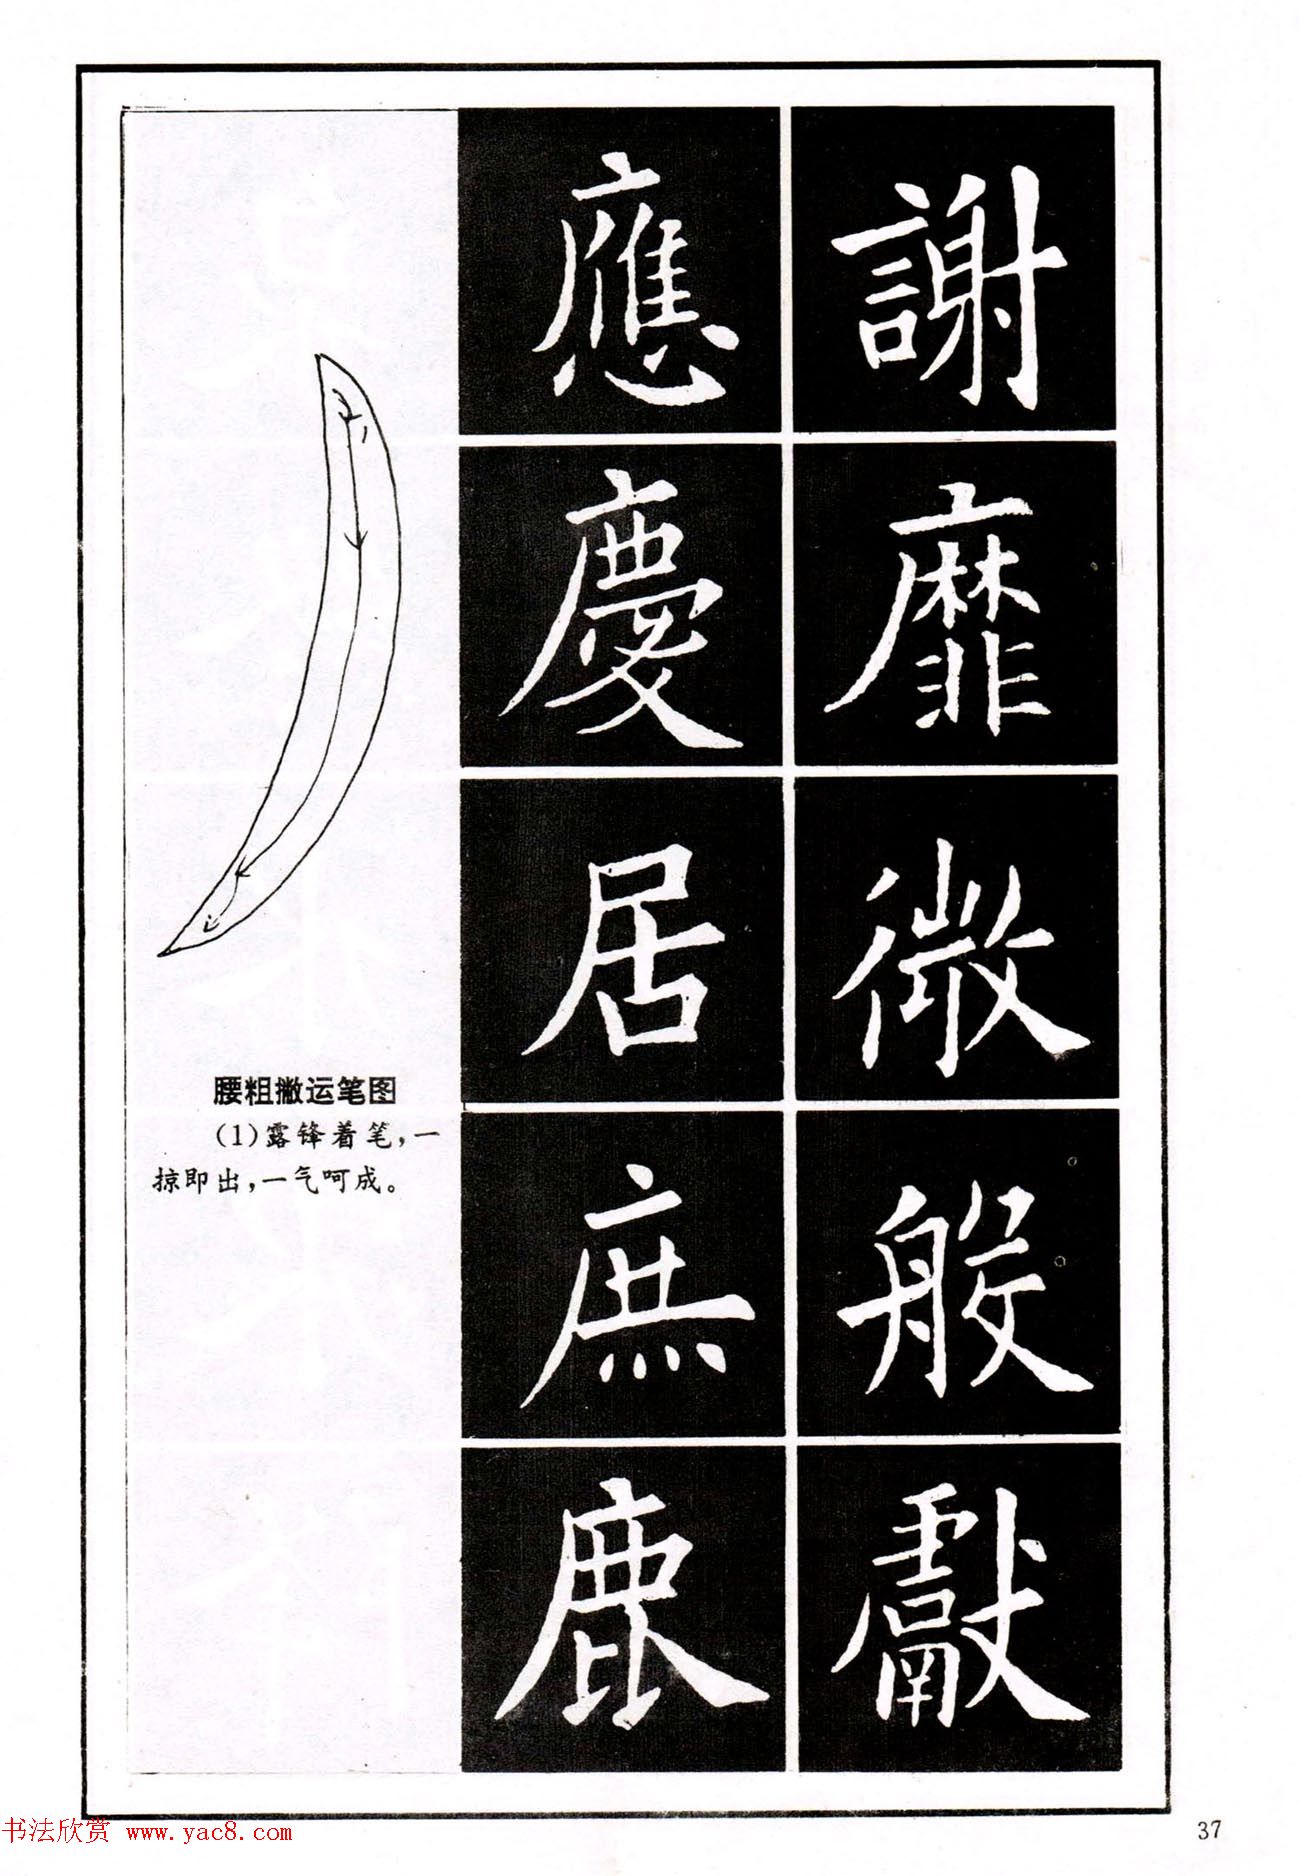 謝
靡
微
般
獻
應
慶
居
庶
鹿
腰粗撇运笔图
(1)露锋着笔,一
掠即出,一气呵成。
书法欣赏 www.yac8.com
37